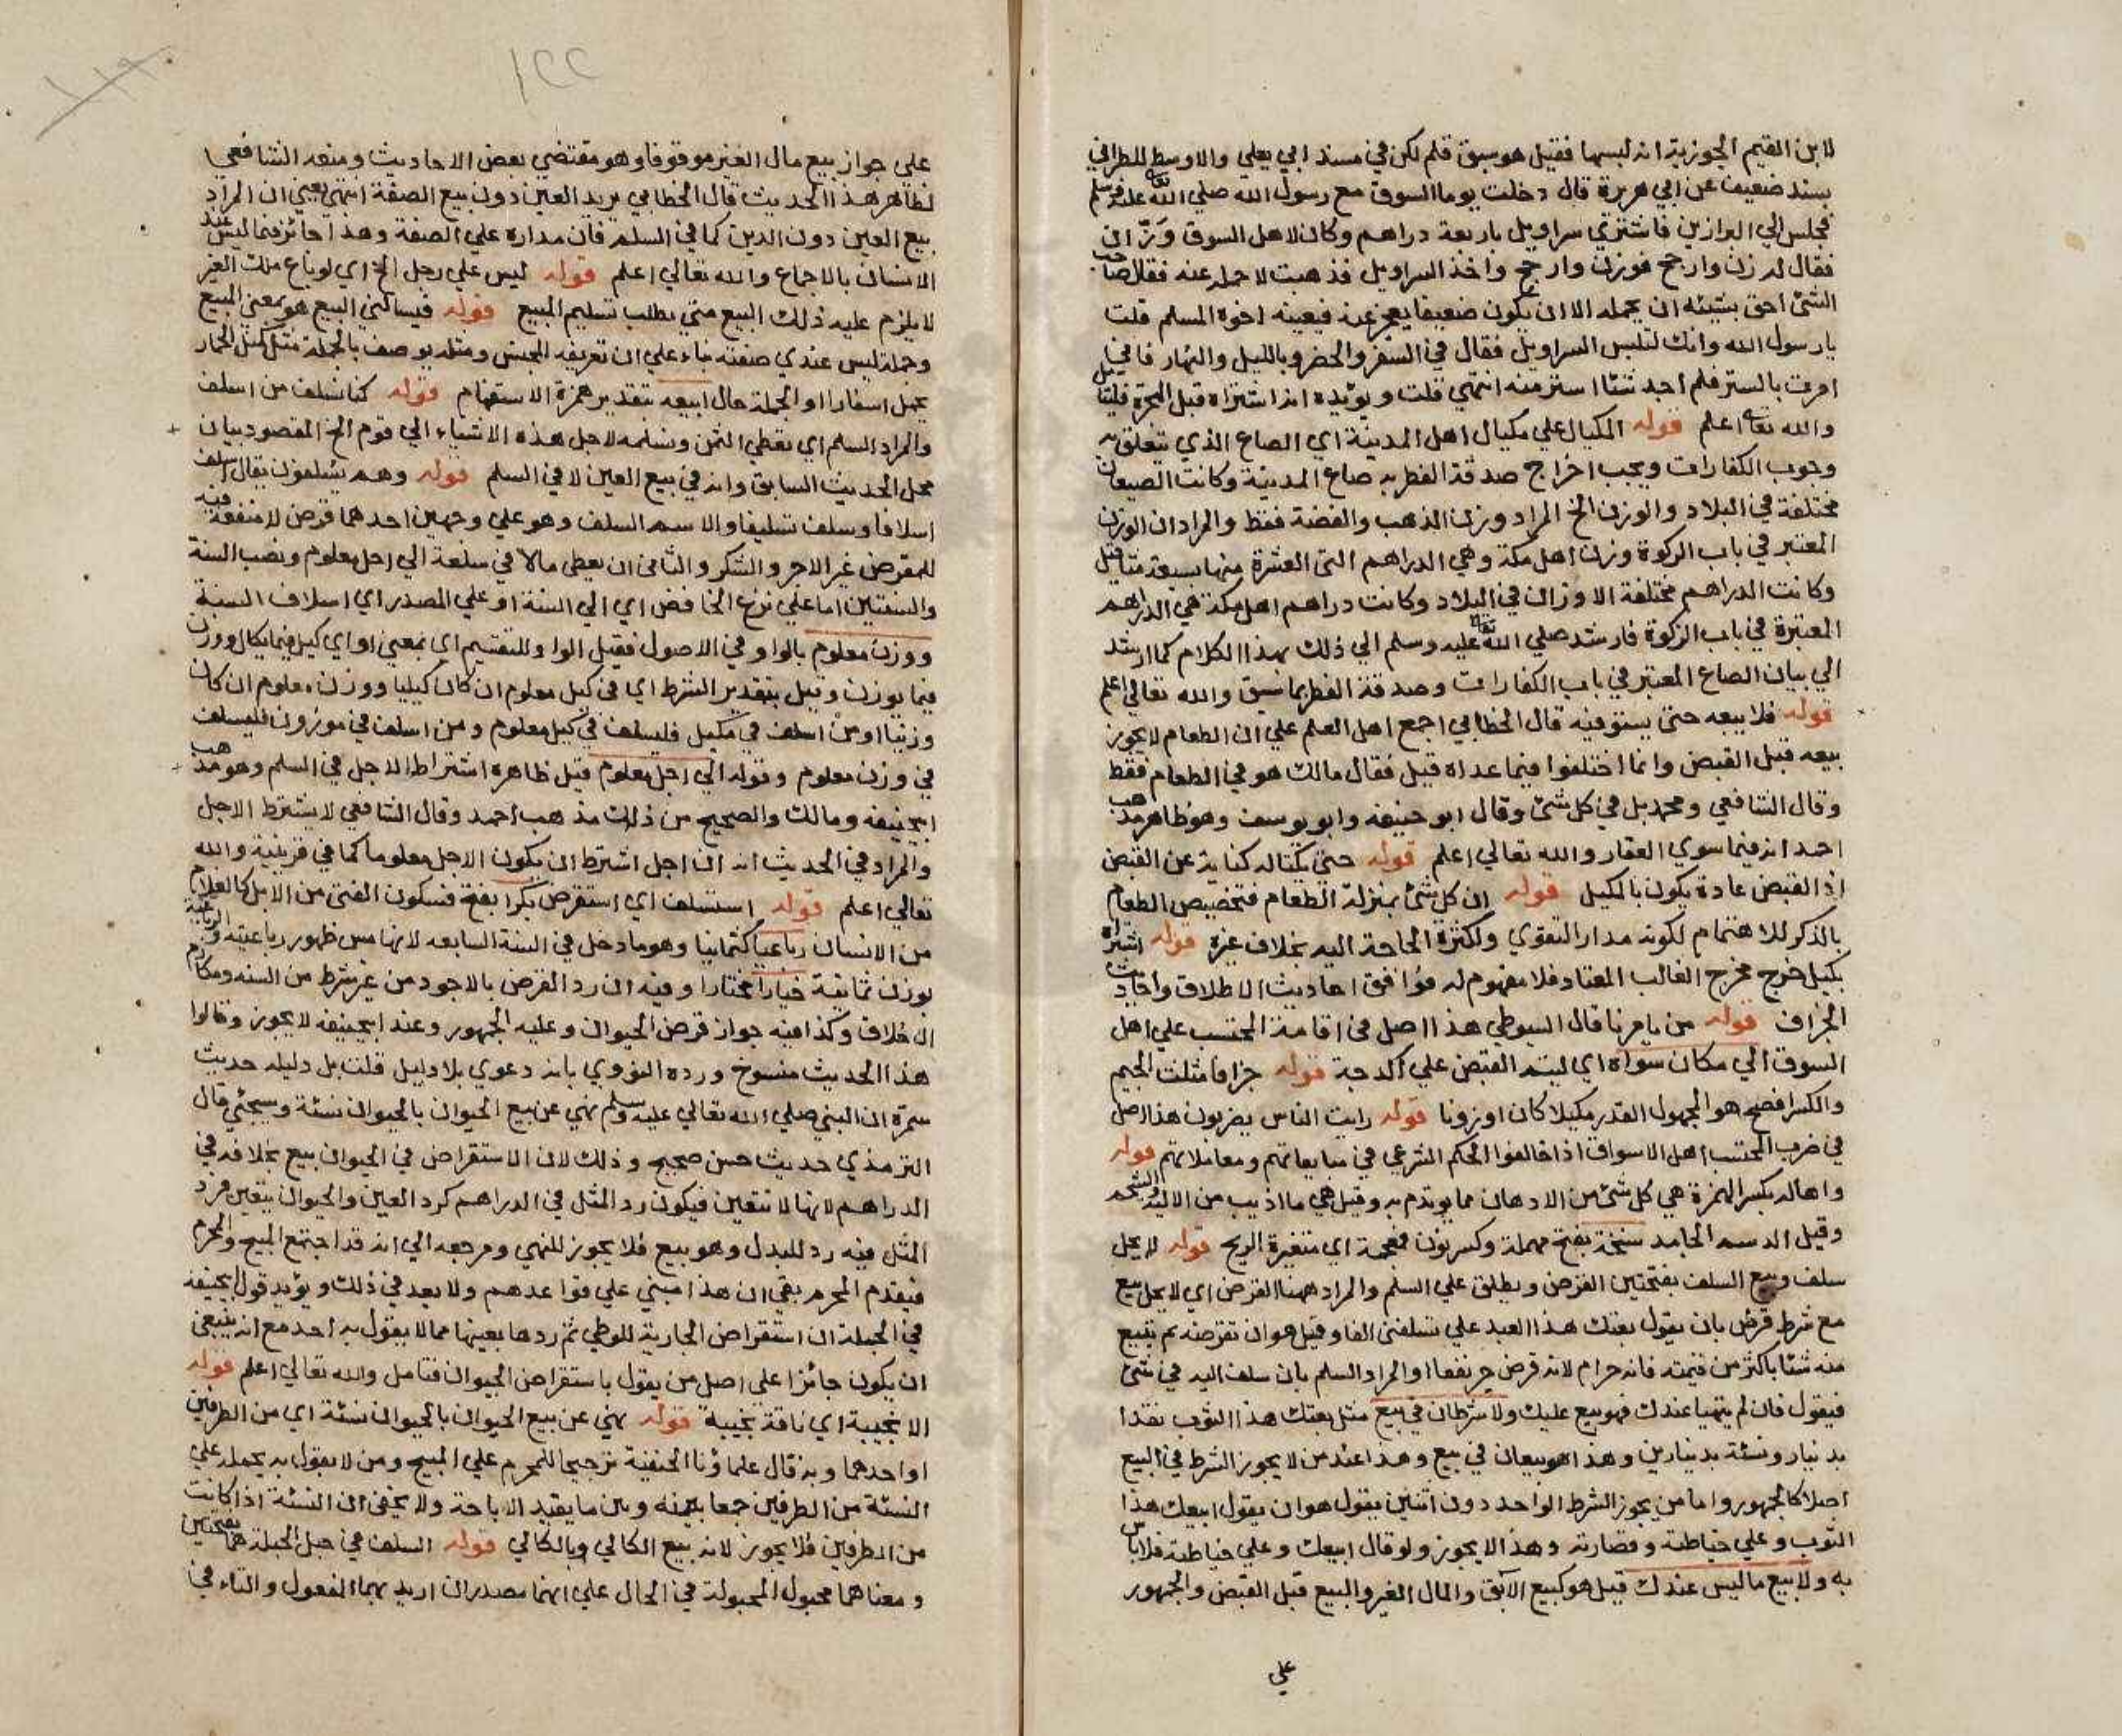 لابن القيم الجوزية انه لبسها فقيل هو سبق قلم لكن في مسند ابي يعلي والاوسط للطبراني
بسند ضعيف عن ابي هريرة قال دخلت يوما السوق مع رسول الله صلي الله تعا عليه وسلم
فجلس الي البزازين فاشتري سراويل باربعة دراهم وكان لاهل السوق وزان
فقال له زن وارجح فوزن وارجح واخذ السراويل فذهبت لاحمله عنه فقال صاحب
الشئ احق بشيئه ان يحمله الا ان يكون ضعيفا يعجز عنه فيعينه اخوه المسلم قلت
يا رسول الله وانك لتلبس السراويل فقال في السفر والحضر وبالليل والنهار فاني
امرت بالستر فلم اجد شئا استر منه انتهي قلت ويؤيده انه اشتراه قبل الهجرة
والله تعا اعلم قوله المكيال علي مكيال اهل المدينة اي الصاع الذي تتعلق به
وجوب الكفارات ويجب اخراج صدقة الفطر به صاع المدينة وكانت الصيعان
مختلفة في البلاد والوزن الخ المراد وزن الذهب والفضة فقط والمراد ان الوزن
المعتبر في باب الزكوة وزن اهل مكة وهي الدراهم التي العشرة منها بسبعة مثاقيل
وكانت الدراهم مختلفة الاوزان في البلاد وكانت دراهم اهل مكة هي الدراهم
المعتبرة في باب الزكوة فارشد صلي الله تعا عليه وسلم الي ذلك بهذا الكلام كما ارشد
الي بيان الصاع المعتبر في باب الكفارات وصدقة الفطر بما سبق والله تعالي اعلم
قوله فلا يبعه حتي يستوفيه قال الخطابي اجمع اهل العلم علي ان الطعام لا يجوز
بيعه قبل القبض وانما اختلفوا فيما عداه قيل فقال مالك هو في الطعام فقط
وقال الشافعي ومحمد بل في كل شئ وقال ابو حنيفة وابو يوسف وهو ظاهر مذهب
احمد انه فيما سوي العقار والله تعالي اعلم قوله حتي يكتاله كناية عن القبض
اذ القبض عادة يكون بالكيل قوله ان كل شئ بمنزلة الطعام فتخصيص الطعام
بالذكر للاهتمام لكونه مدار التقوي ولكثرة الحاجة اليه بخلاف غيره قوله اشتراه
بكيل خرج مخرج الغالب المعتاد فلا مفهوم له فوافق احاديث الاطلاق واحاديث
الجزاف قوله من يامرنا قال السيوطي هذا اصل في اقامة المحتسب علي اهل
السوق الي مكان سواه اي ليتم القبض علي اكد وجه قوله جزافا مثلث الجيم
والكسر افصح هو المجهول القدر مكيلا كان او زونا قوله رايت الناس يضربون هذا اصل
في ضرب المحتسب اهل الاسواق اذا خالفوا الحكم الشرعي في مبايعاتهم ومعاملاتهم قوله
واهاله بكسر الهمزة هي كل شئ من الادهان مما يوتدم به وقيل هي ما اذيب من الالية والشحم
وقيل الدسم الجامد سنخة بفتح مهملة وكسر نون فمعجمة اي متغيرة الريح قوله لا يحل
سلف وبيع السلف بفتحتين القرض ويطلق علي السلم والمراد ههنا القرض اي لا يحل بيع
مع شرط قرض بان يقول بعتك هذا العبد علي ان تسلفني الفا وقيل هو ان تقرضه ثم تبيع
منه شئا باكثر من قيمته فانه حرام لانه قرض جر نفعا او المراد السلم بان سلف اليه في شئ
فيقول فان لم يتهيا عندك فهو بيع عليك ولا شرطان في بيع مثل بعتك هذا الثوب نقدا
بدينار ونسئة بدينارين وهذا هو بيعان في بيع وهذا عند من لا يجوز الشرط في البيع
اصلا كالجمهور واما من يجوز الشرط الواحد دون اثنين يقول هو ان يقول ابيعك هذا
الثوب وعلي خياطته وقصارته وهذا لا يجوز ولو قال ابيعك وعلي خياطته فلا باس
به ولا بيع ما ليس عندك قيل هو كبيع الآبق والمال الغير والمبيع قبل القبض والجمهور
علي
١٢٢
علي جواز بيع مال الغير موقوفا وهو مقتضي بعض الاحاديث ومنعه الشافعي
لظاهر هذا الحديث قال الخطابي يريد العين دون بيع الصفة انتهي يعني ان المراد
بيع العين دون الدين كما في السلم فان مداره علي الصفة وهذا جائز فيما ليس عند
الانسان بالاجماع والله تعالي اعلم قوله ليس علي رجل الخ اي لو باع ملك الغير
لا يلزم عليه ذلك البيع متي يطلب تسليم المبيع قوله فيسالني البيع هو بمعني المبيع
وجملة ليس عندي صفته بناء علي ان تعريفه للجنس ومثله يوصف بالجملة مثل كمثل الحمار
يحمل اسفارا او الجملة حال ابيعه بتقدير همزة الاستفهام قوله كنا نسلف من اسلف
والمراد السلم اي نعطي الثمن ونسلمه لاجل هذه الاشياء الي قوم الخ المقصود بيان
محل الحديث السابق وانه في بيع العين لا في السلم قوله وهم يسلفون يقال اسلف
اسلافا وسلف تسليفا والاسم السلف وهو علي وجهين احدهما قرض لا منفعة فيه
للمقرض غير الاجر والشكر والثاني ان يعطي مالا في سلعة الي اجل معلوم ونصب السنة
والسنتين اما علي نزع الخافض اي الي السنة او علي المصدر اي اسلاف السنة
ووزن معلوم بالواو في الاصول فقيل الواو للتقسيم اي بمعني او اي كيل فيما يكال ووزن
فيما يوزن وقيل بتقدير الشرط اي في كيل معلوم ان كان كيليا ووزن معلوم ان كان
وزنيا او من اسلف في مكيل فليسلف في كيل معلوم ومن اسلف في موزون فليسلف
في وزن معلوم وقوله الي اجل معلوم قيل ظاهره اشتراط الاجل في السلم وهو مذهب
ابيحنيفه ومالك والصحيح من ذلك مذهب احمد وقال الشافعي لا يشترط الاجل
والمراد في الحديث انه ان اجل اشترط ان يكون الاجل معلوما كما في قرينية والله
تعالي اعلم قوله استسلف اي استقرض بكرا بفتح فسكون الفتي من الابل كالغلام
من الانسان رباعيا كثمانيا وهو ما دخل في السنة السابعه لانها من ظهور رباعيته والرباعية
بوزن ثمانية خيارا مختارا وفيه ان رد القرض بالاجود من غير شرط من السنه ومكارم
الاخلاق وكذا فيه جواز قرض الحيوان وعليه الجمهور وعند ابيحنيفه لا يجوز وقالوا
هذا الحديث منسوخ ورده النووي بانه دعوي بلا دليل قلت بل دليله حديث
سمرة ان النبي صلي الله تعالي عليه وسلم نهي عن بيع الحيوان بالحيوان نسئة وسيجئ قال
الترمذي حديث حسن صحيح وذلك لان الاستقراض في الحيوان بيع بخلافه في
الدراهم لانها لا تتعين فيكون رد المثل في الدراهم كرد العين والحيوان يتعين فرد
المثل فيه رد للبدل وهو بيع فلا يجوز للنهي ومرجعه الي انه قد اجتمع المبيح والمحرم
فيقدم المحرم بقي ان هذا مبني علي قواعدهم ولا بعد في ذلك ويؤيد قول ابيحنيفه
في الجملة ان استقراض الجارية للوطي ثم ردها بعينها مما لا يقول به احد مع انه ينبغي
ان يكون جائزا علي اصل من يقول باستقراض الحيوان فتامل والله تعالي اعلم قوله
الا نجيبة اي ناقة نجيبة قوله نهي عن بيع الحيوان بالحيوان نسئة اي من الطرفين
او احدهما وبه قال علماؤنا الحنفية ترجيحا للمحرم علي المبيح ومن لا يقول به يحمله علي
النسئة من الطرفين جمعا بينه وبين ما يفيد الاباحة ولا يخفي ان النسئة اذا كانت
من الطرفين فلا يجوز لانه بيع الكالي وبالكالي قوله السلف في حبل الحبلة هما بفتحتين
ومعناهما محبول المحبولة في الحال علي انهما مصدران اريد بهما المفعول والتاء في